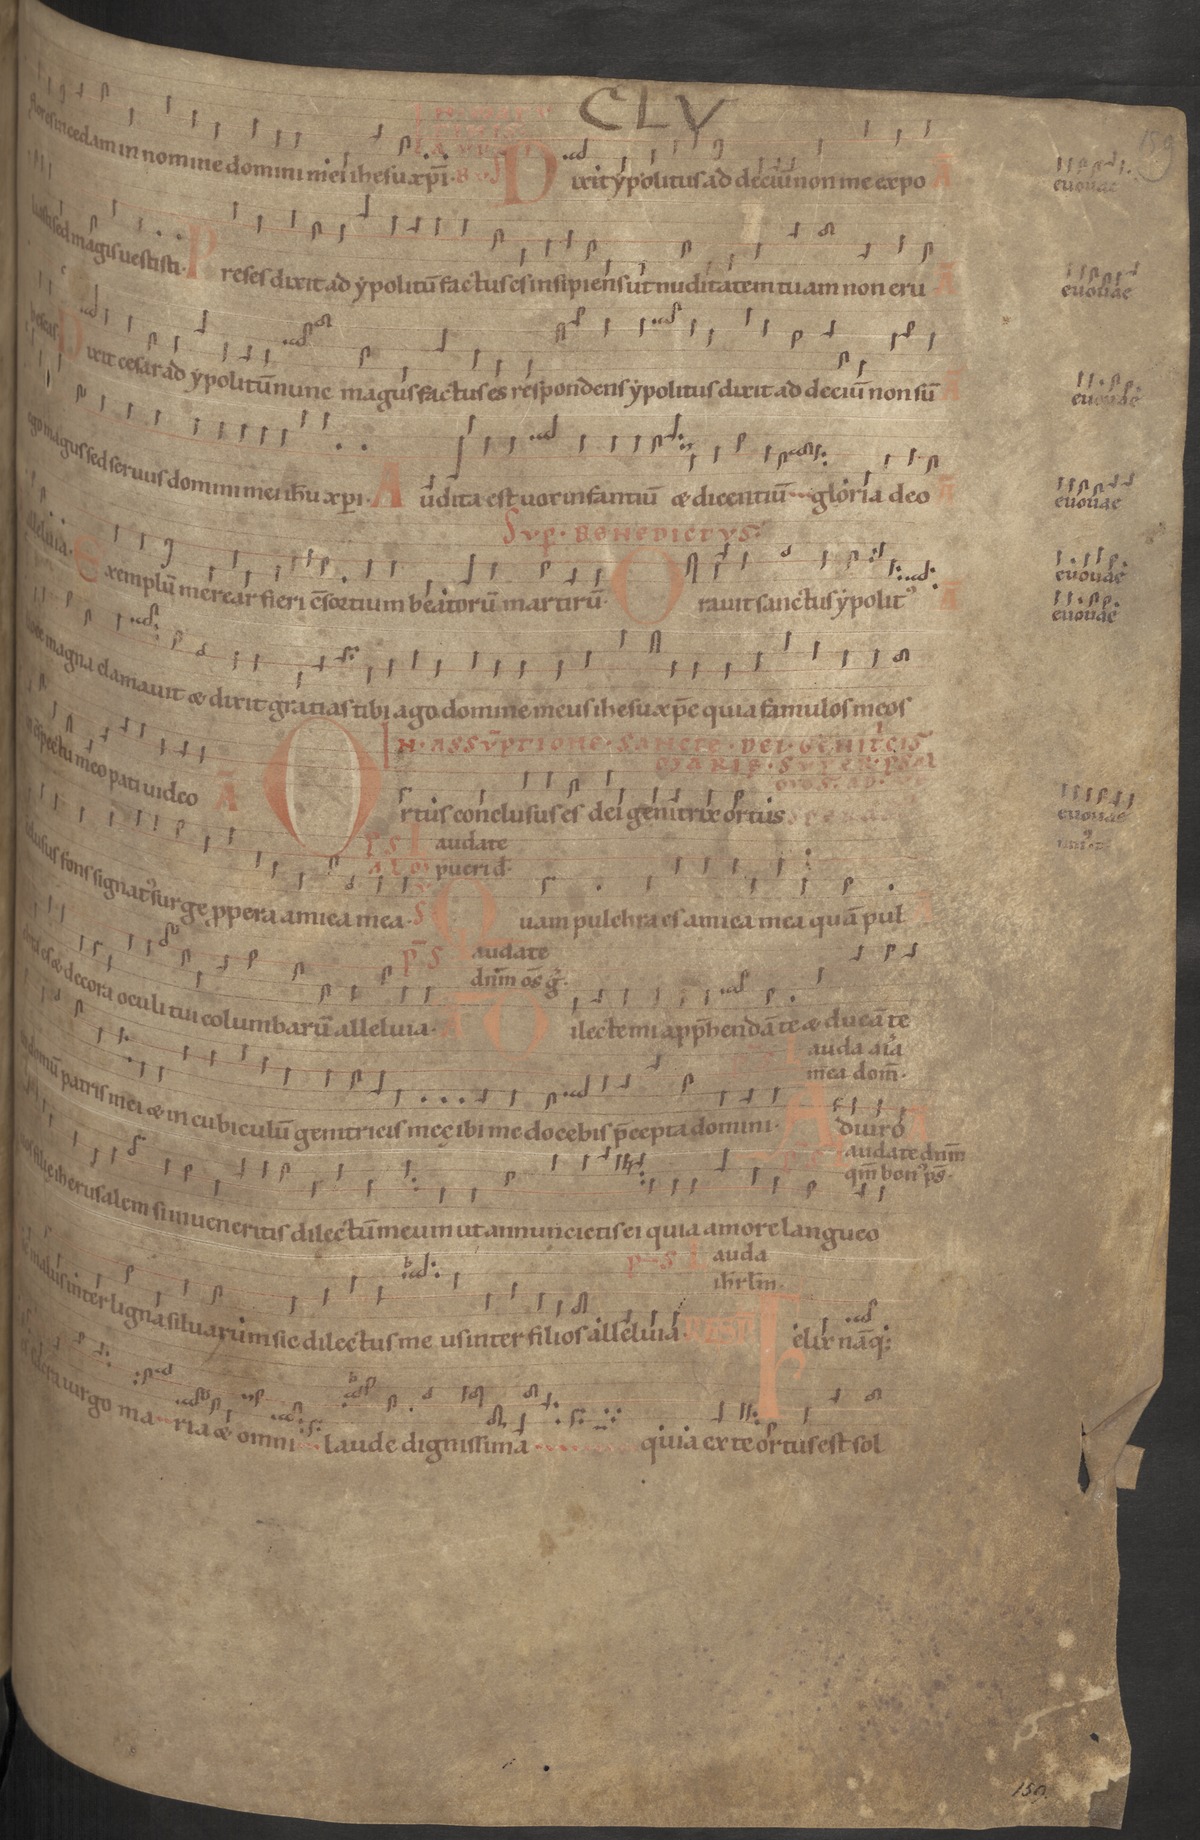 CLV
159
incedam in nomine domini mei ihesu xp̄i.
Dixit ẏpolitus ad deciū non me expo
A
euouae
sed magis uestisti.
Preses dixit ad ẏpolitū factus es insipiens ut nuditatem tuam non eru
A
euouae
bescas
Dixit cesar ad ẏpolitū nunc magus factus es respondens ẏpolitus dixit ad deciū non sū
A
euouae
ego magus sed seruus domini mei ih̄u xp̄i.
Audita est uox infantiū & dicentiū gloria deo
A
euouae
alleluia.
Sup. BENEDICTVS.
Exemplū merear fieri c̄sortium beatorū martirū.
Orauit sanctus ẏpolit᾽
A
euouae
euouae
uoce magna clamauit & dixit gratias tibi ago domine meus ihesu xp̄e quia famulos meos
IN ASSVPTIONE SANCTE DEI GENITCIS
MARIE. SVPER PSAL
in c̄spectu meo pati uideo
A
Ortus conclusus es dei genitrix ortus
euouae
PS Laudate
pueri d̄.
clusus fons signat᾽ surge ꝓpera amica mea.
Quam pulchra es amica mea quā pul
A
PS Laudate
dn̄m om̄s ḡ.
chra es & decora oculi tui columbarū alleluia.
A
Dilecte mi app̄hendā te & ducā te
Lauda aīa
mea dom̄.
in domū patris mei & in cubiculū genitricis meę ibi me docebis p̄cepta domini.
Adiuro
Laudate dn̄m
qm̄ bon᾽ ps̄.
uos filię iherusalem si inueneritis dilectū meum ut annuncietis ei quia amore langueo
PS Lauda
ihrl̄m.
malus inter ligna siluarum sic dilectus me us inter filios alleluia.
RESP
Felix nāq;
es sacra uirgo maria & omni laude dignissima quia ex te ortus est sol
159.